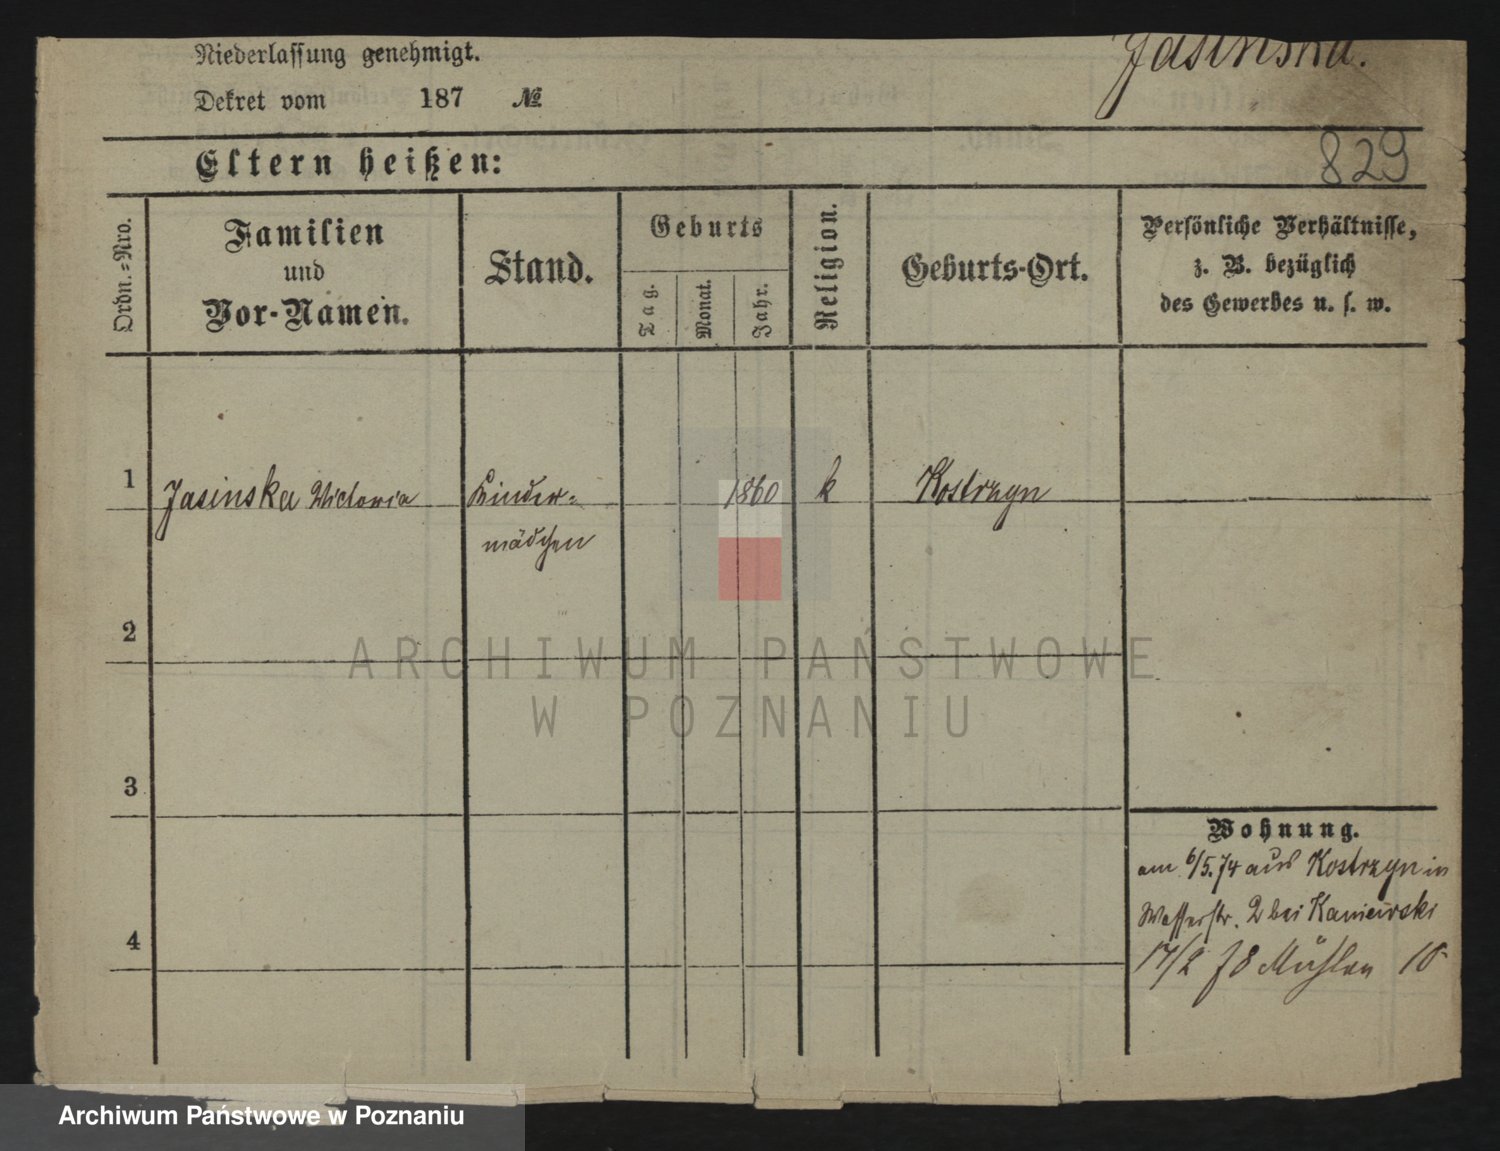 Niederlassung genehmigt.
Jasinska.
Dekret vom 187 №
829
Eltern heißen:
Ordn.=Nro.
Familien
und
Vor-Namen.
Stand.
Geburts
Tag.
Monat.
Jahr.
Religion.
Geburts-Ort.
Persönliche Verhältnisse,
z. B. bezüglich
des Gewerbes u. s. w.
1 Jasinska Victoria Kinder= 1860 k Kostrzyn
mädchen
2
ARCHIWUM PAŃSTWOWE
W POZNANIU
3
Wohnung.
am 6/5.74 aus Kostrzyn in
Wasserstr. 2 bei Kaniewski
4
17/2 78 Mühlen 10
Archiwum Państwowe w Poznaniu